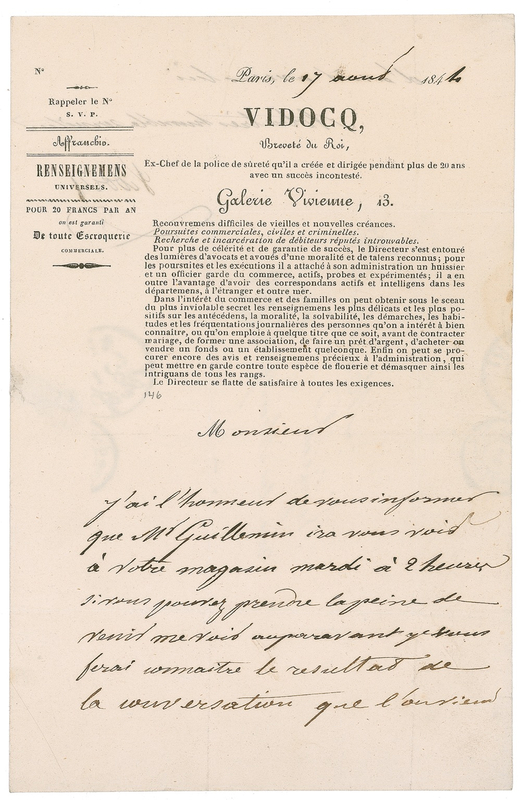 N°
Rappeler le N°
S. V. P.
Affranchir.
RENSEIGNEMENS
UNIVERSELS.
POUR 20 FRANCS PAR AN
on est garanti
De toute Escroquerie
COMMERCIALE.
Paris, le 17 aout 184
VIDOCQ,
Breveté du Roi,
Ex-Chef de la police de sûreté qu'il a créée et dirigée pendant plus de 20 ans
avec un succès incontesté.
Galerie Vivienne, 13.
Recouvremens difficiles de vieilles et nouvelles créances.
Poursuites commerciales, civiles et criminelles.
Recherche et incarcération de débiteurs réputés introuvables.
Pour plus de célérité et de garantie de succès, le Directeur s'est entouré
des lumières d'avocats et avoués d'une moralité et de talens reconnus; pour
les poursuites et les exécutions il a attaché à son administration un huissier
et un officier garde du commerce, actifs, probes et expérimentés; il a en
outre l'avantage d'avoir des correspondans actifs et intelligens dans les
départemens, à l'étranger et outre mer.
Dans l'intérêt du commerce et des familles on peut obtenir sous le sceau
du plus inviolable secret les renseignemens les plus délicats et les plus po-
sitifs sur les antécédens, la moralité, la solvabilité, les démarches, les habi-
tudes et les fréquentations journalières des personnes qu'on a intérêt à bien
connaître, ou qu'on emploie à quelque titre que ce soit, avant de contracter
mariage, de former une association, de faire un prêt d'argent, d'acheter ou
vendre un fonds ou un établissement quelconque. Enfin on peut se pro-
curer encore des avis et renseignemens précieux à l'administration, qui
peut mettre en garde contre toute espèce de flouerie et démasquer ainsi les
intriguans de tous les rangs.
Le Directeur se flatte de satisfaire à toutes les exigences.
146
Monsieur
J'ai l'honneur de vous informer
que Mr Guillemin ira vous voir
à votre magasin mardi à 2 heures
si vous pouvez prendre la peine de
venir me voir auparavant je vous
ferai connaitre le resultat de
la conversation que l'